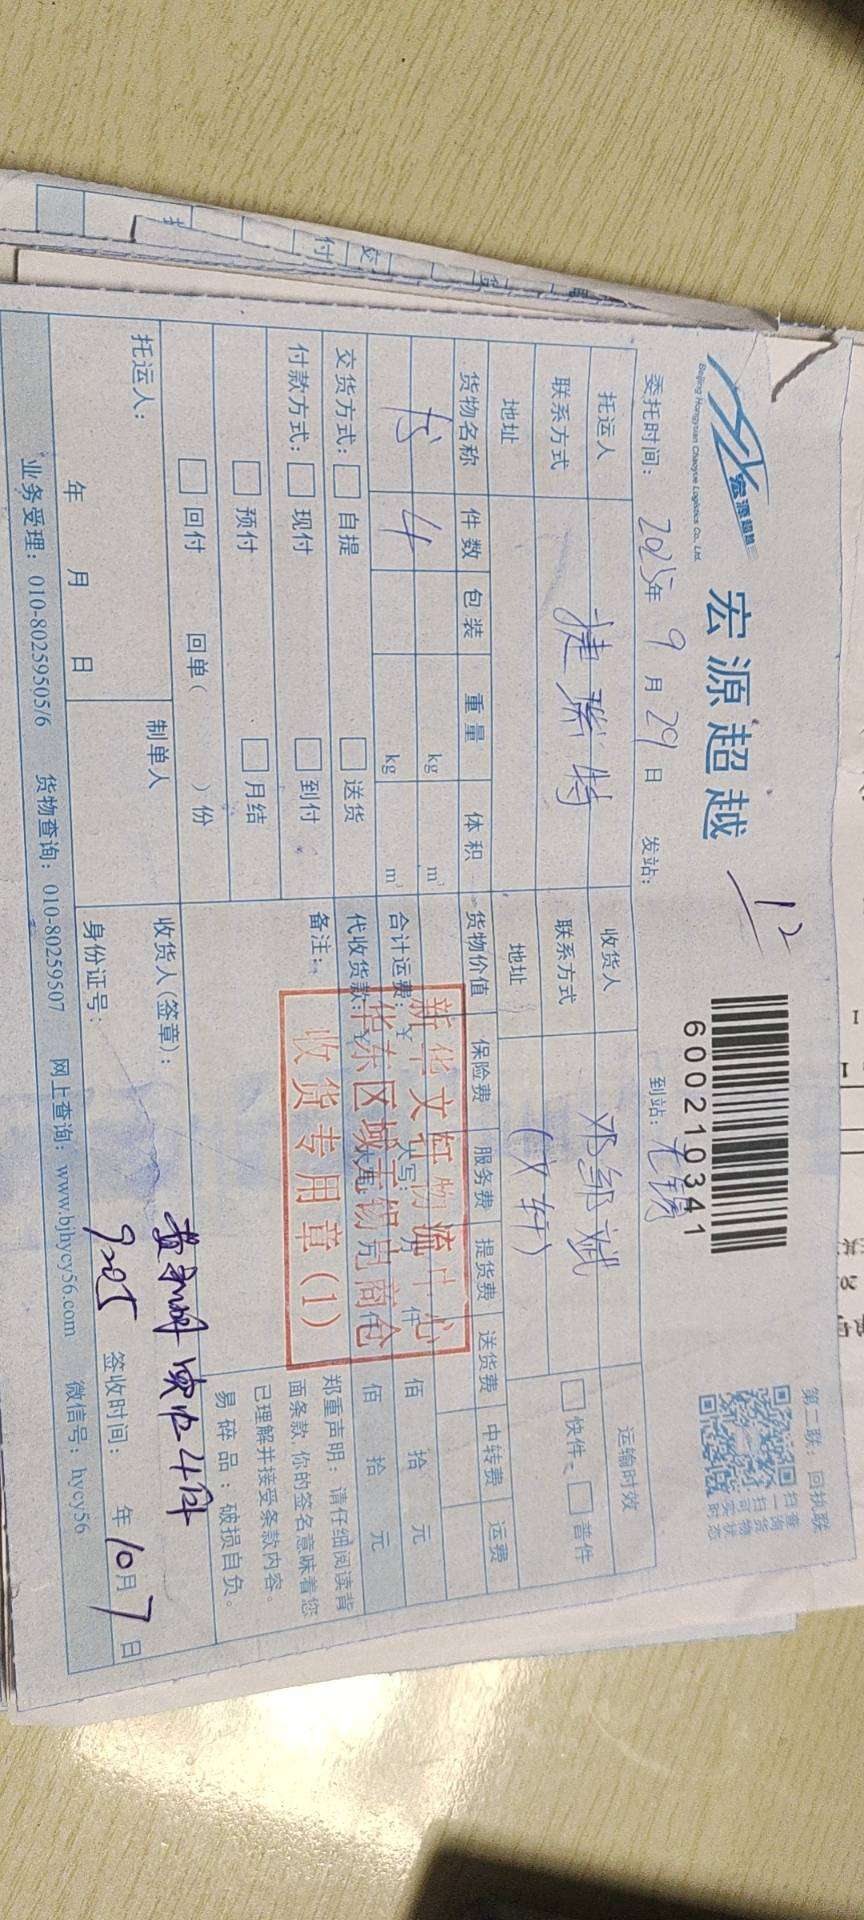 宏源超越
Beijing Hongyuan Chaoyue Logistics Co., Ltd.
宏源超越
12
600210341
第二联：回执联
扫一扫可实时
查询货物状态
委托时间：2025年9月29日
发站：
到站：无锡
托运人
捷瑞特
收货人
邓邹斌
运输时效
联系方式
联系方式
(文轩)
快件
普件
地址
地址
货物名称
件数
包装
重量
体积
货物价值
保险费
服务费
提货费
送货费
中转费
运费
书
4
kg
m³
kg
m³
合计运费：¥
佰
拾
元
代收货款：¥
佰
拾
元
交货方式：
自提
送货
备注：
付款方式：
现付
到付
预付
月结
回付
回单（ ）份
新华文轩物流中心
华东区域无锡克商仓
收货专用章(1)
郑重声明：请仔细阅读背
面条款,你的签名意味着您
已理解并接受条款内容。
易碎品：破损自负。
托运人：
年 月 日
制单人
收货人(签章)：
实收4件
身份证号：
签收时间： 年10月7日
业务受理：010-80259505/6
货物查询：010-80259507
网上查询：www.bjhycy56.com
微信号：hycy56